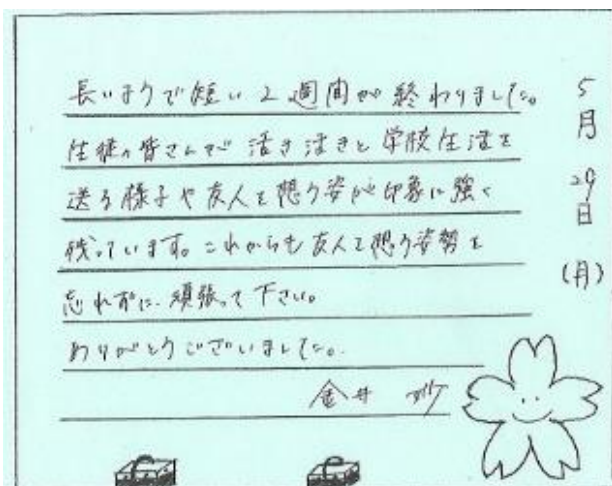 長いようで短い2週間が終わりました。
生徒の皆さんが活き活きと学校生活を
送る様子や友人を想う姿が印象に強く
残っています。これからも友人を想う姿勢を
忘れずに、頑張って下さい。
ありがとうございました。
金井
5月29日(月)